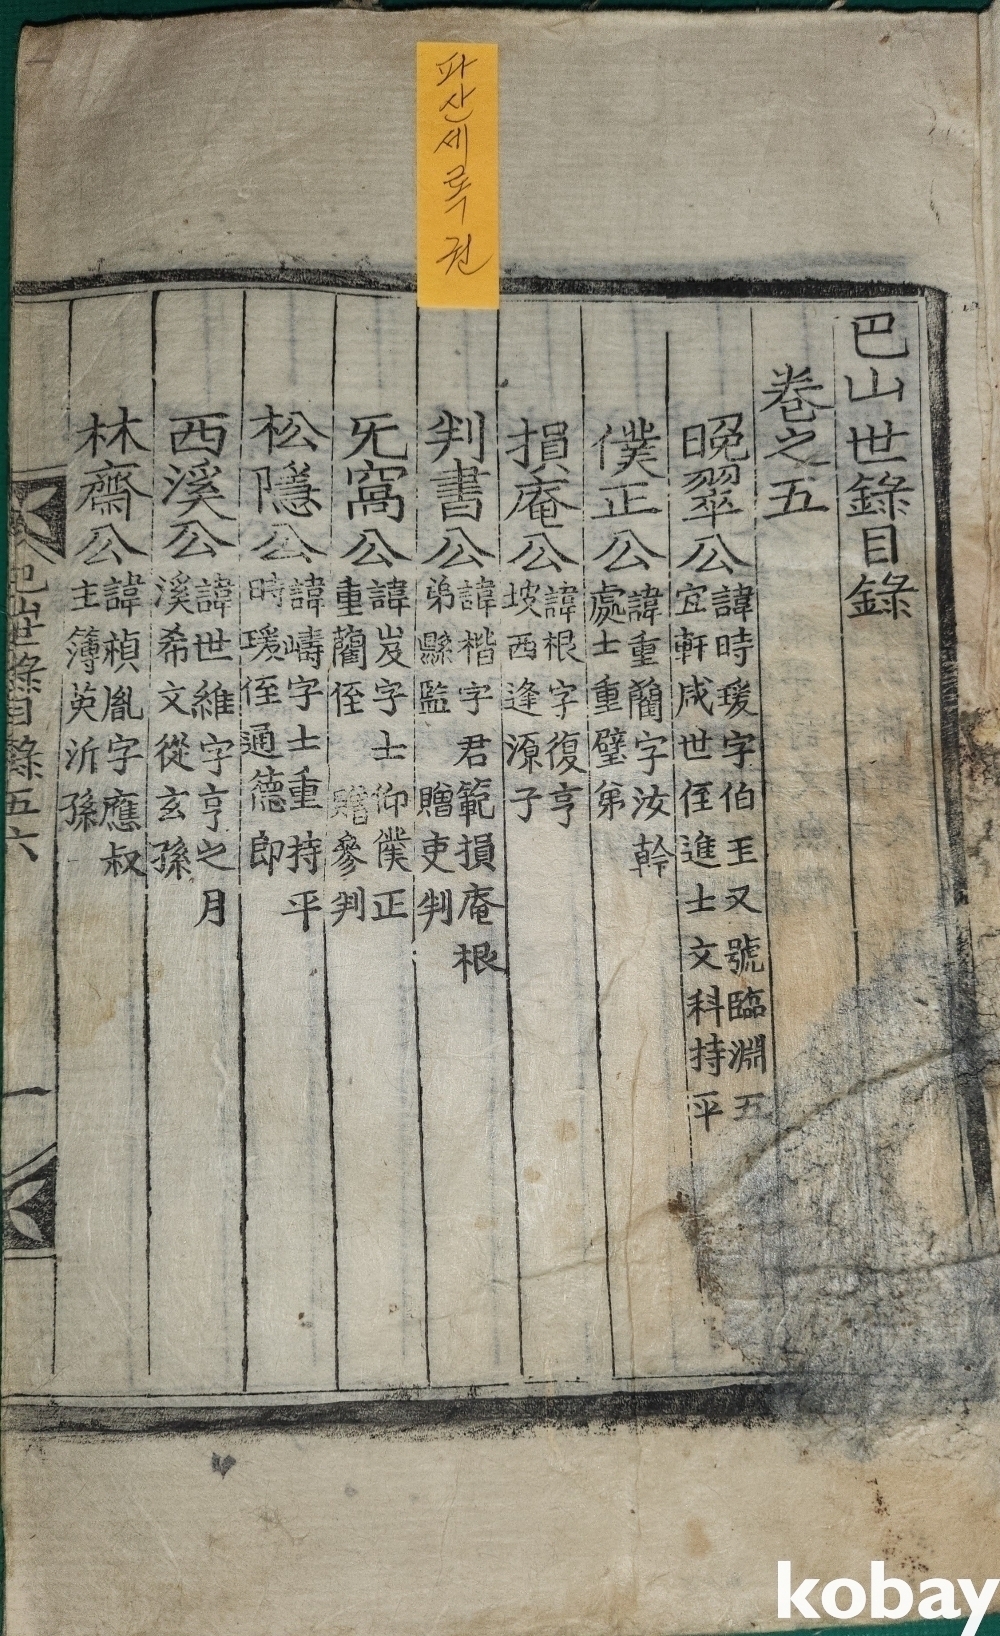 파산세록권
巴山世錄目錄
卷之五
晩翠公 諱時瑗字伯玉又號臨淵五
宜軒成世侄進士文科持平
僕正公 諱重藺字汝幹
處士重璧弟
損庵公 諱根字復亨
坡西逢源子
判書公 諱楷字君範損庵根
弟縣監 贈吏判
旡窩公 諱岌字士仰僕正
重藺侄 贈參判
松隱公 諱嶹字士重持平
時瑗侄通德郎
西溪公 諱世維字亨之月
溪希文從玄孫
林齋公 諱禎胤字應叔
主簿英沂孫
巴山世錄目錄 五六
一
kobay